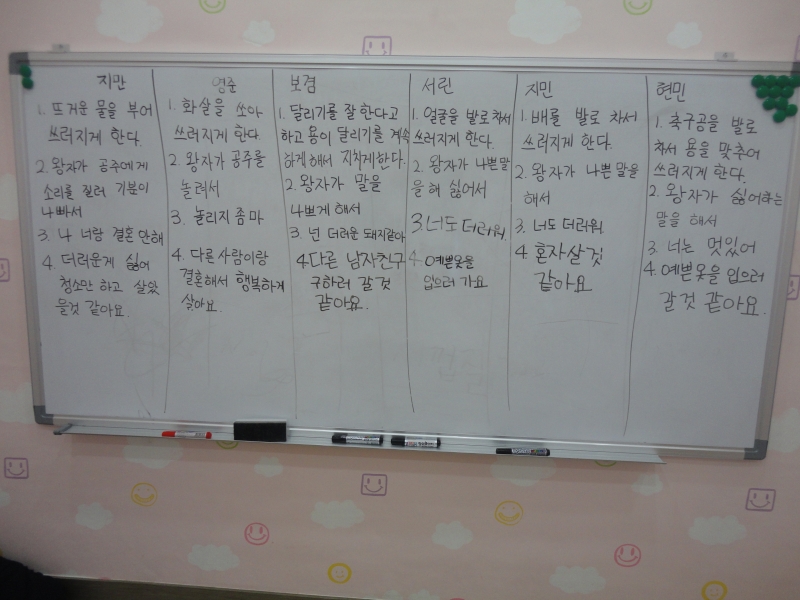 지만
1. 뜨거운 물을 부어
쓰러지게 한다.
2. 왕자가 공주에게
소리를 질러 기분이
나빠서
3. 나 너랑 결혼 안해
4. 더러운게 싫어
청소만 하고 살았
을것 같아요.
영준
1. 화살을 쏘아
쓰러지게 한다.
2. 왕자가 공주를
놀려서
3. 놀리지 좀 마
4. 다른 사람이랑
결혼해서 행복하게
살아요.
보겸
1. 달리기를 잘 한다고
하고 용이 달리기를 계속
하게 해서 지치게 한다.
2. 왕자가 말을
나쁘게 해서
3. 넌 더러운 돼지같아
4. 다른 남자친구
구하러 갈 것
같아요.
서린
1. 얼굴을 발로 차서
쓰러지게 한다.
2. 왕자가 나쁜말
을 해 싫어서
3. 너도 더러워.
4. 예쁜옷을
입으러 가요.
지민
1. 배를 발로 차서
쓰러지게 한다.
2. 왕자가 나쁜 말을
해서
3. 너도 더러워
4. 혼자살 것
같아요
현민
1. 축구공을 발로
차서 용을 맞추어
쓰러지게 한다.
2. 왕자가 싫어하는
말을 해서
3. 너는 멋있어
4. 예쁜옷을 입으러
갈것 같아요